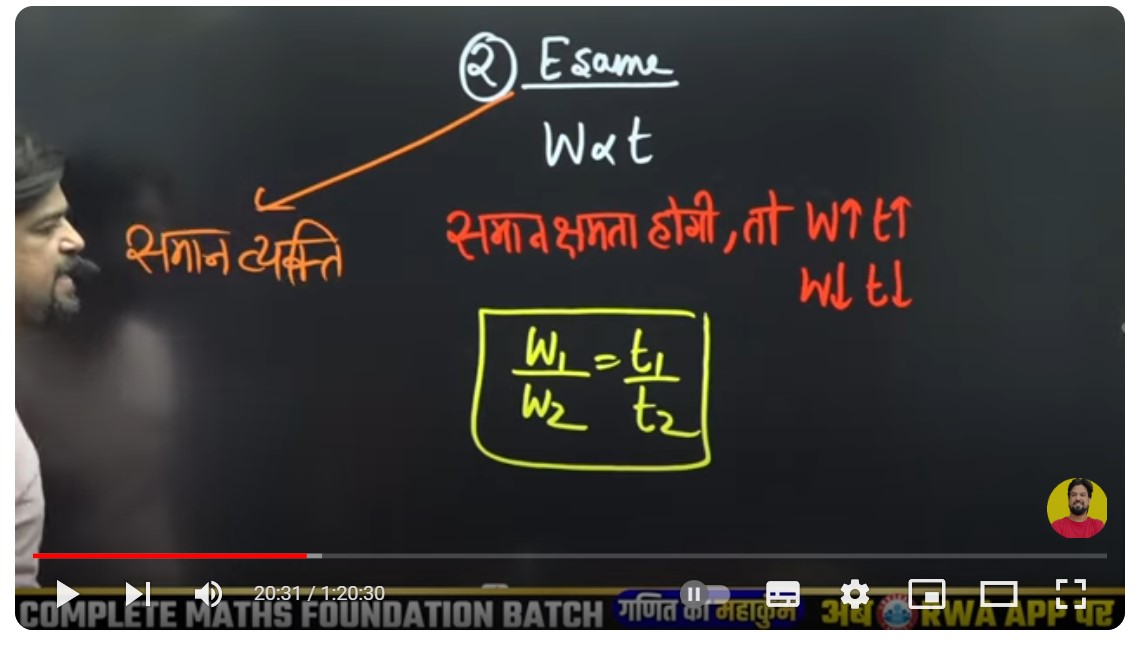 २ Esame
W∝t
समान व्यक्ति
समान क्षमता होगी, तो W↑ t↑
W↓ t↓
W₁/W₂ = t₁/t₂
20:31 / 1:20:30
COMPLETE MATHS FOUNDATION BATCH गणित का महाकुंभ अब RWA APP पर